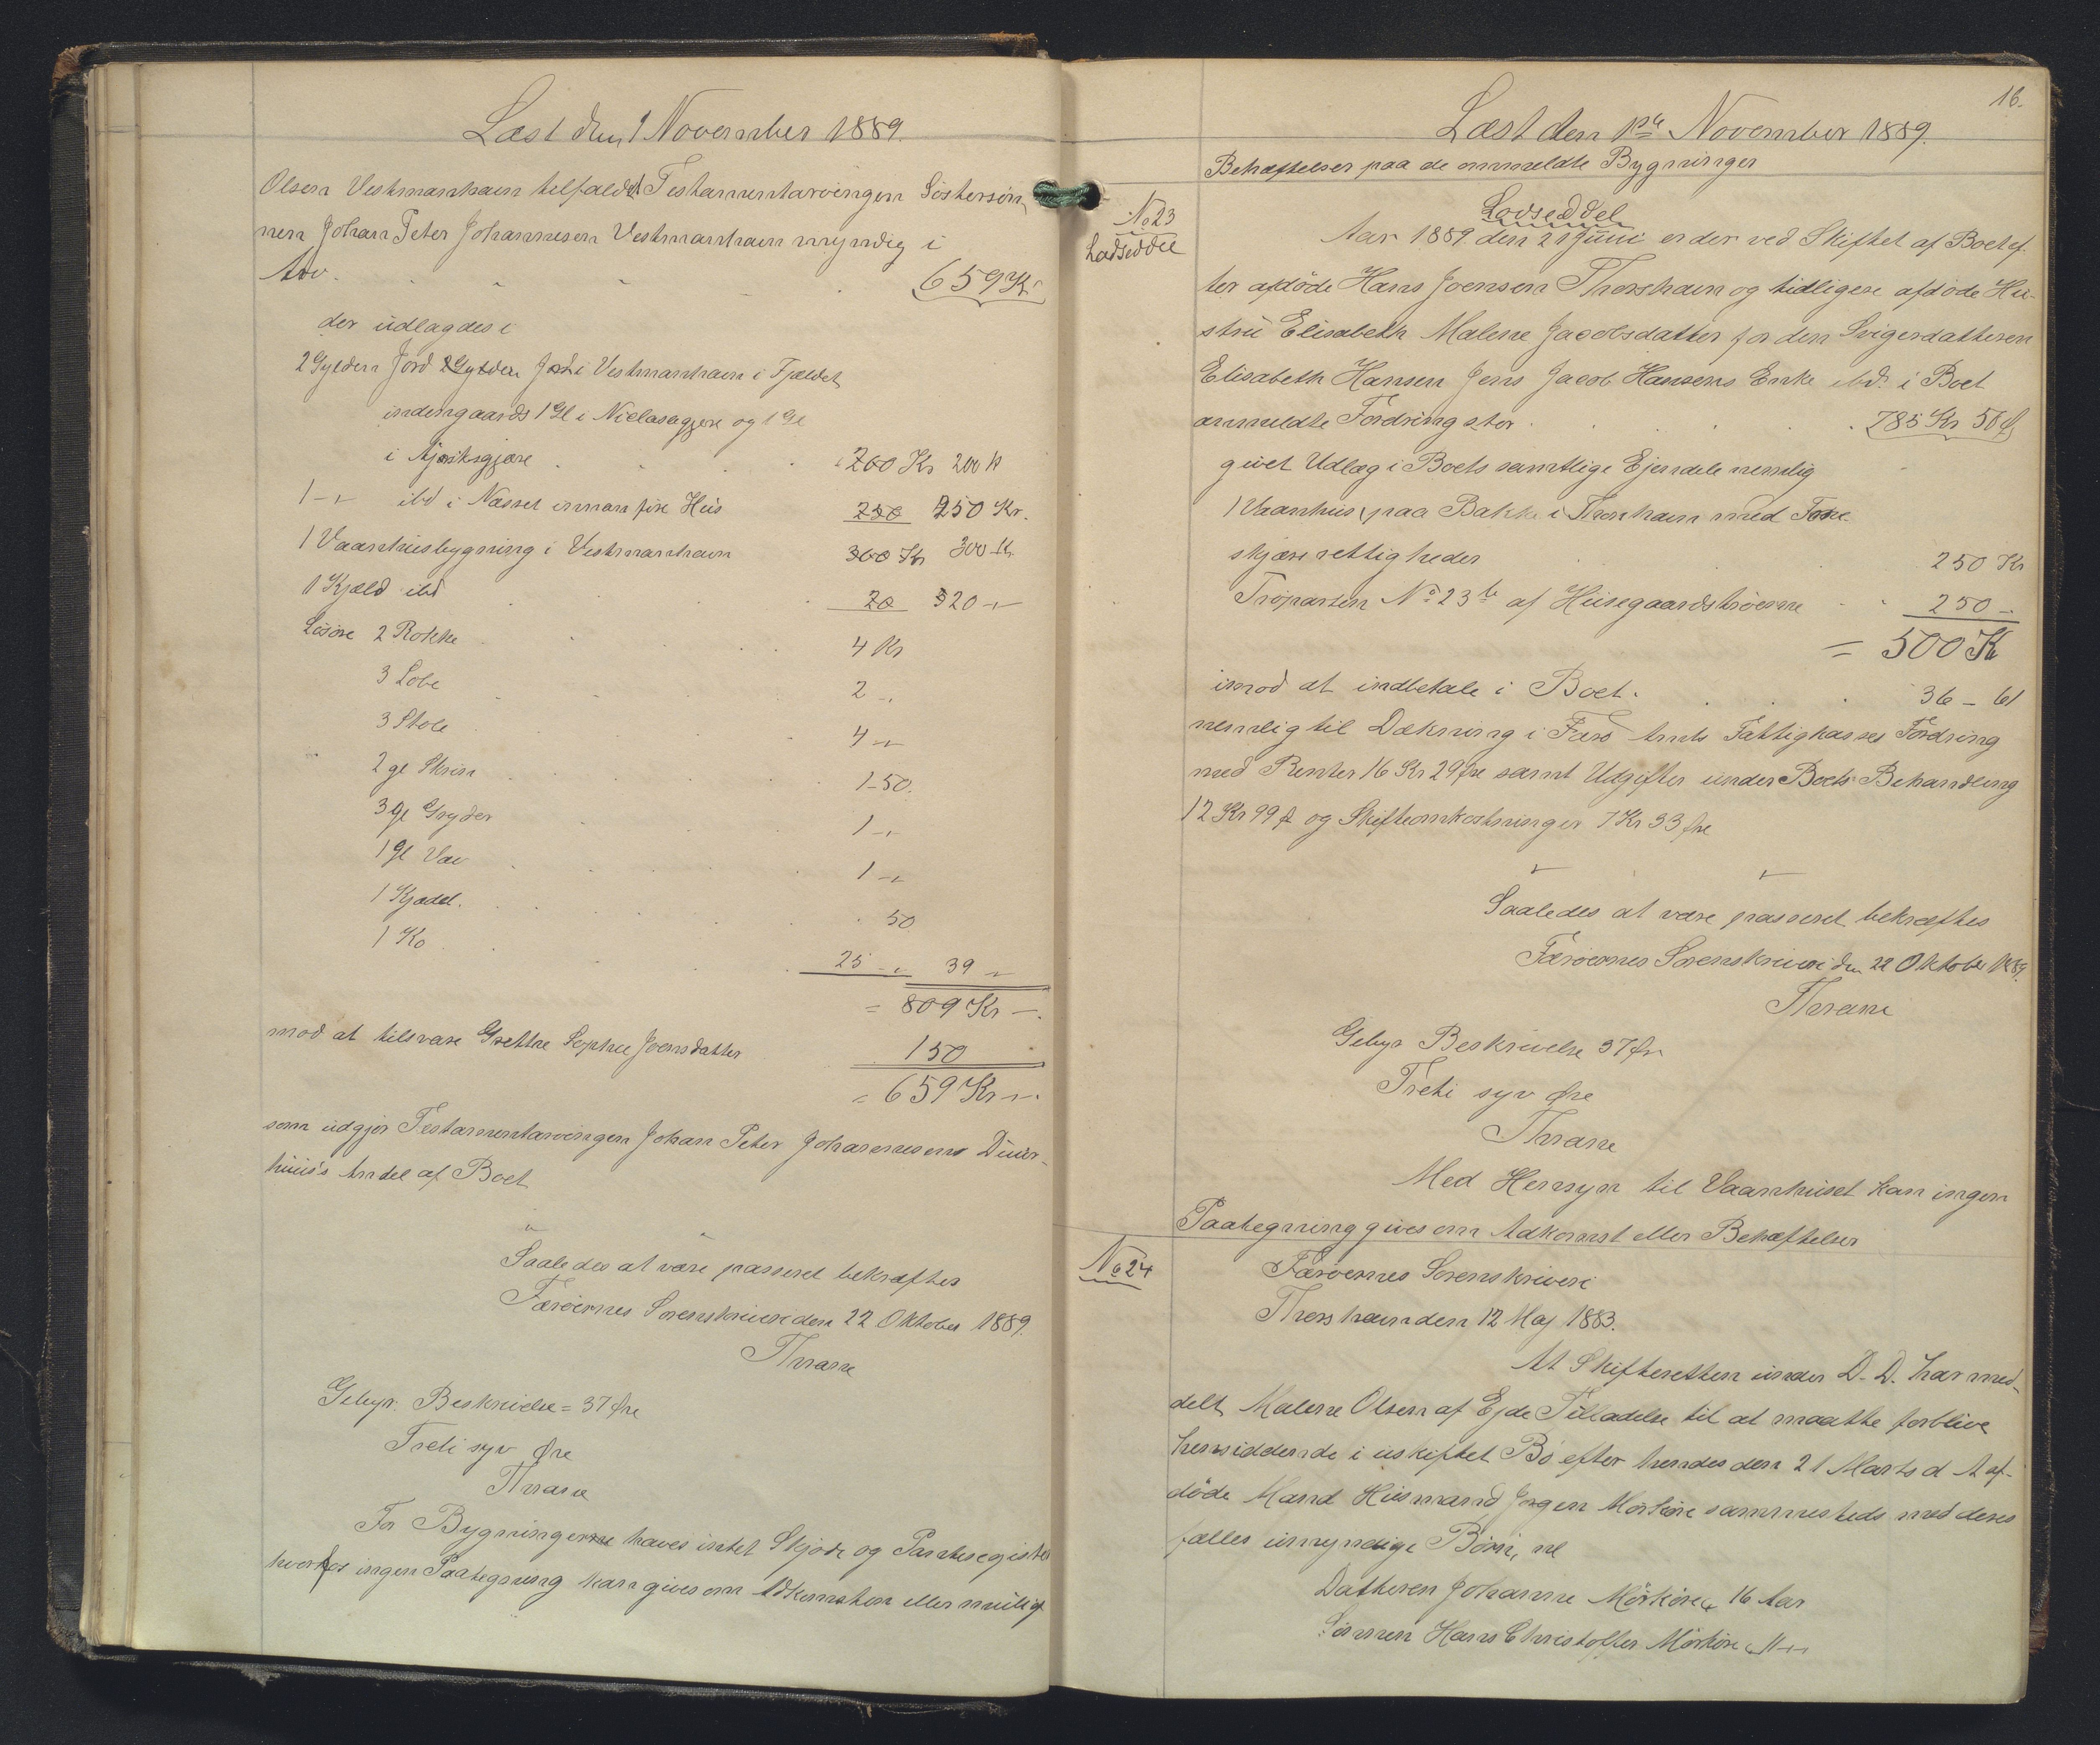 Læst den 1 November 1889.
Olsen Vestmanhavn tilfaldt Testamentarvingen Søstersøn
nen Johan Peter Johannesen Vestmanhavn myndig i
Arv. 659 Kr
der udlagdes i
2 Gylden Jord 2 Gylden Jord i Vestmanhavn i Fjældet
indengaards 1 Gl i Nielasagjere og 1 Gl
i gjære 200 Kr 200 K
1 - " - ibd i Næsset innan fire Hus 250 250 Kr.
1 Vaanhusbygning i Vestmanhavn 300 Kr 300 Kr.
1 Kjæld ibd 20 20 - " -
Løsøre 2 Rokke 4 Kr
3 Lobe 2 - "
3 Stole 4 - "
2 gl Skrin 1 - 50.
3 gl Gryder 1 - "
1 gl Væv 1 - "
1 Kjædel. 50
1 Ko 25 - " 39 "
= 809 Kr -.
mod at tilsvare Grethe Sophie Joensdatter 150
= 659 Kr - " -
som udgjør Testamentarvingen Johan Peter Johannesens Duur-
huus's Andel af Boet
Saaledes at være passeret bekræftes
Færøernes Sorenskriveri den 22 Oktober 1889.
Thrane
Gebyr. Beskrivelse = 37 Øre
Treti syv Øre
Thrane
For Bygningerne haves intet Skjøde og Panteregister
hvorfor ingen Paategning kan gives om Adkomsten eller mulige
16.
Læst den 1ste November 1889.
Behæftelser paa de ommeldte Bygninger
No 23
Lodseddel
Lodseddel
Aar 1889 den 21 Juni er der ved Skiftet af Boet ef
ter afdøde Hans Joensen Thorshavn og tidligere afdøde Hu-
stru Elisabeth Malene Jacobsdatter for den Svigerdatteren
Elisabeth Hansen Jens Jacob Hansens Enke ibd. i Boet
anmeldte Fordring stor 785 Kr 50 Ø
givet Udlæg i Boets samtlige Ejendele nemlig
1 Vaanhus paa Bakke i Thorshavn med Torve
skjærerettigheder 250 Kr
Trøparten No 23 de af Husegaardstrøerne 250 -
= 500 Kr
imod at indbetale i Boet. 36 - 61
nemlig til Dækning i Færø Amts Fattigkasses Fordring
med Renter 16 Kr 29 Øre samt Udgifter under Boets Behandling
12 Kr 99 Ø og Skifteomkostninger 7 Kr 33 Øre
Saaledes at være passeret bekræftes
Færøernes Sorenskriveri den 22 Oktober 1889.
Thrane
Gebyr Beskrivelse 37 Øre
Treti syv Øre
Thrane
Med Hensyn til Vaanhuset kan ingen
Paategning gives om Adkomst eller Behæftelser
No 24
Færøernes Sorenskriveri
Thorshavn den 12 Maj 1883.
At Skifteretten under D. D. har med-
delt Malene Olsen af Ejde Tilladelse til at maatte forblive
hensiddende i uskiftet Bo efter hendes den 21 Marts d A af-
døde Mand Husmand Jógen Mørkøre sammesteds med deres
fælles umyndige Børn, nl
Datteren Johanne Mørkøre, 16 Aar
Sønnen Hans Christoffer Mørkøre 11 - " -